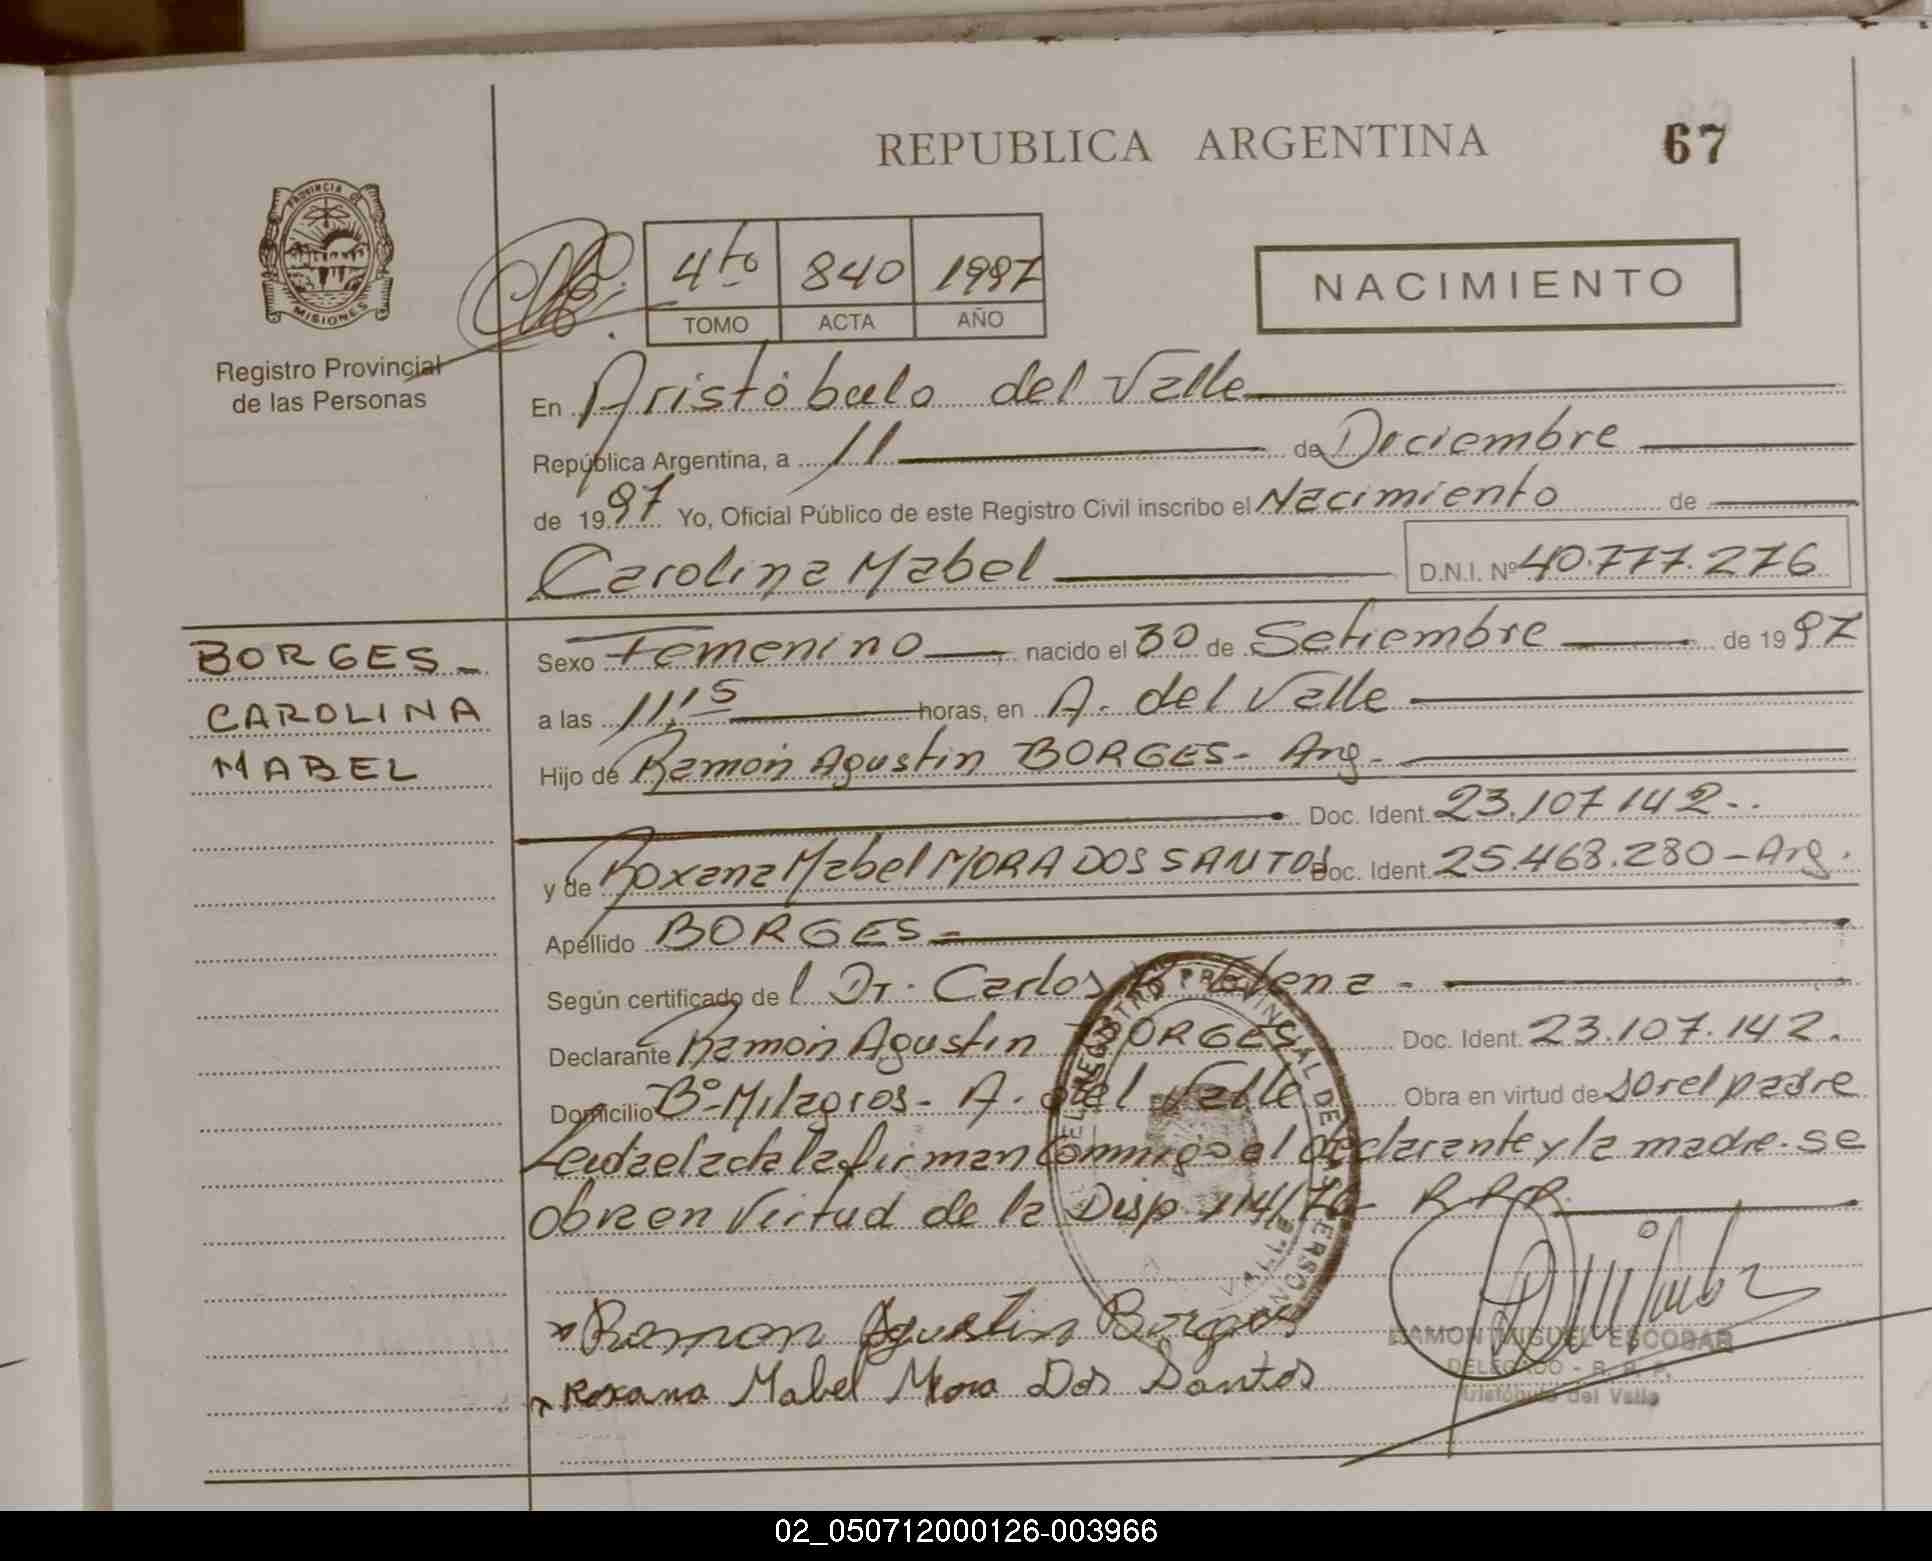 REPUBLICA ARGENTINA
67
PROVINCIA DE
MISIONES
Registro Provincial
de las Personas
4to 840 1997
TOMO ACTA AÑO
NACIMIENTO
En Aristóbulo del Valle
República Argentina, a 11 de Diciembre
de 1997 Yo, Oficial Público de este Registro Civil inscribo el Nacimiento de
Carolina Mabel D.N.I. Nº 40.777.276
BORGES
CAROLINA
MABEL
Sexo Femenino, nacido el 30 de Setiembre de 1997
a las 11,15 horas, en A. del Valle
Hijo de Ramón Agustin BORGES - Arg.
Doc. Ident. 23.107.142
y de Roxana Mabel MORA DOS SANTOS Doc. Ident. 25.468.280 - Arg.
Apellido BORGES
Según certificado de l Dr. Carlos Elena
Declarante Ramón Agustin BORGES Doc. Ident. 23.107.142.
Domicilio Bº Milagros - A. del Valle Obra en virtud de ser el padre
Leida el acta la firman conmigo el declarante y la madre. se
obra en virtud de la Disp. 114/76 R.P.P.
Ramon Agustin Borges
Roxana Mabel Mora Dos Santos
RAMON MIGUEL ESCOBAR
DELEGADO - R. P. P.
Aristóbulo del Valle
02_050712000126-003966